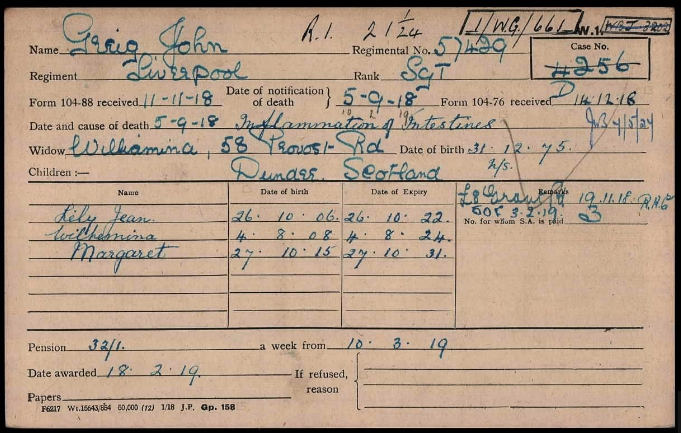 R.1. 21/1/24 1/W.G./661 W.1
Name Greig John Regimental No. 57429 Case No.
Regiment Liverpool Rank Sgt 4256
Form 104-88 received 11-11-18 Date of notification of death } 5-9-18 Form 104-76 received D 14.12.18
Date and cause of death 5-9-18 Inflammation of Intestines 4/5/24
Widow Wilhamina, 58 Provost Rd Date of birth 31. 12. 75.
Children :— Dundee. Scotland
Name Date of birth Date of Expiry Remarks
Lily Jean. 26. 10. 06. 26. 10. 22. 19.11.18.
Wilhemina 4. 8. 08. 4. 8. 24. 3.2.19. No. for whom S.A. is paid 3
Margaret 27. 10. 15 27. 10. 31.
Pension 32/1. a week from 10. 3. 19
Date awarded 18. 2. 19. If refused, reason
Papers
F6217 Wt.15643/854 50,000 (12) 1/18 J.P. Gp. 158